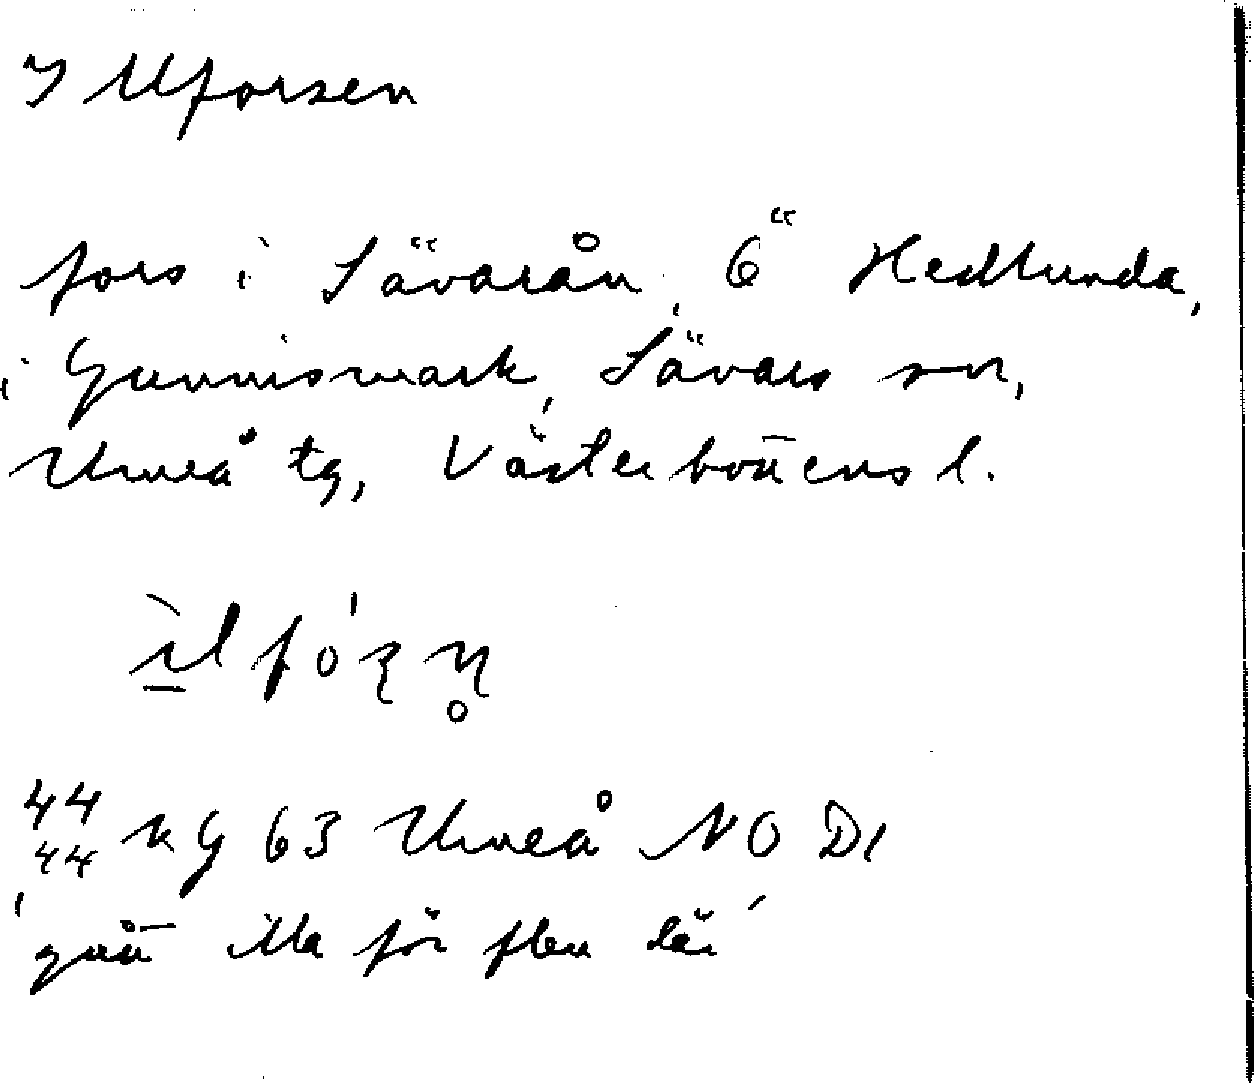 Illforsen
fors i Sävarån, Ö Hedlunda,
i Gunnismark, Sävars sn,
Umeå tg, Västerbottens l.
ìlfórn
44 44 KG 63 Umeå NO D1
illa för flen där